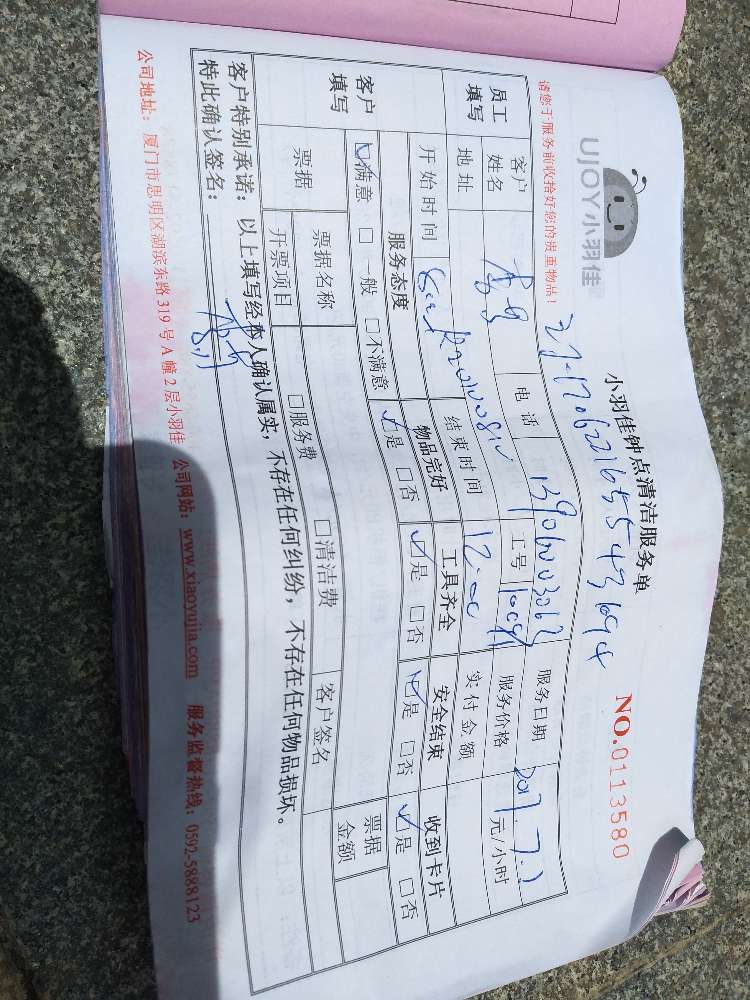 UJOY小羽佳
小羽佳钟点清洁服务单
NO.0113580
请您于服务前收拾好您的贵重物品！
员工填写 客户姓名 电话 服务日期 2017.7.2
地址 工号 服务价格 元/小时
开始时间 结束时间 12:00 实付金额
客户填写 服务态度 物品完好 工具齐全 安全结束 收到卡片
☑满意 □一般 □不满意 ☑是 □否 ☑是 □否 ☑是 □否 ☑是 □否
票据 票据名称 □服务费 □清洁费 客户签名 票据金额
开票项目
客户特别承诺：以上填写经本人确认属实，不存在任何纠纷，不存在任何物品损坏。
特此确认签名：
公司地址：厦门市思明区湖滨东路319号A幢2层小羽佳 公司网站：www.xiaoyujia.com 服务监督热线：0592-5888123